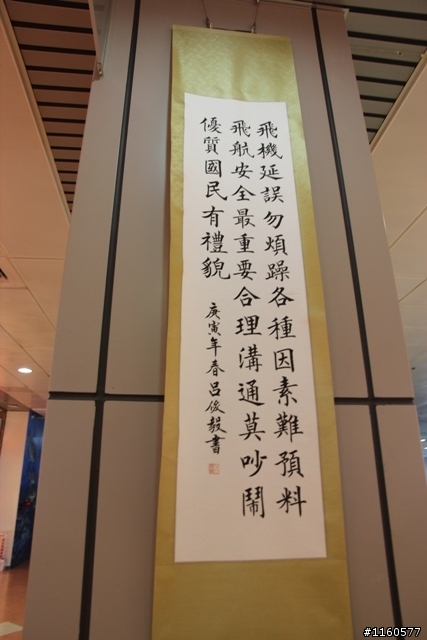 飛機延誤勿煩躁各種因素難預料
飛航安全最重要合理溝通莫吵鬧
優質國民有禮貌
庚寅年春呂俊毅書
#1160577